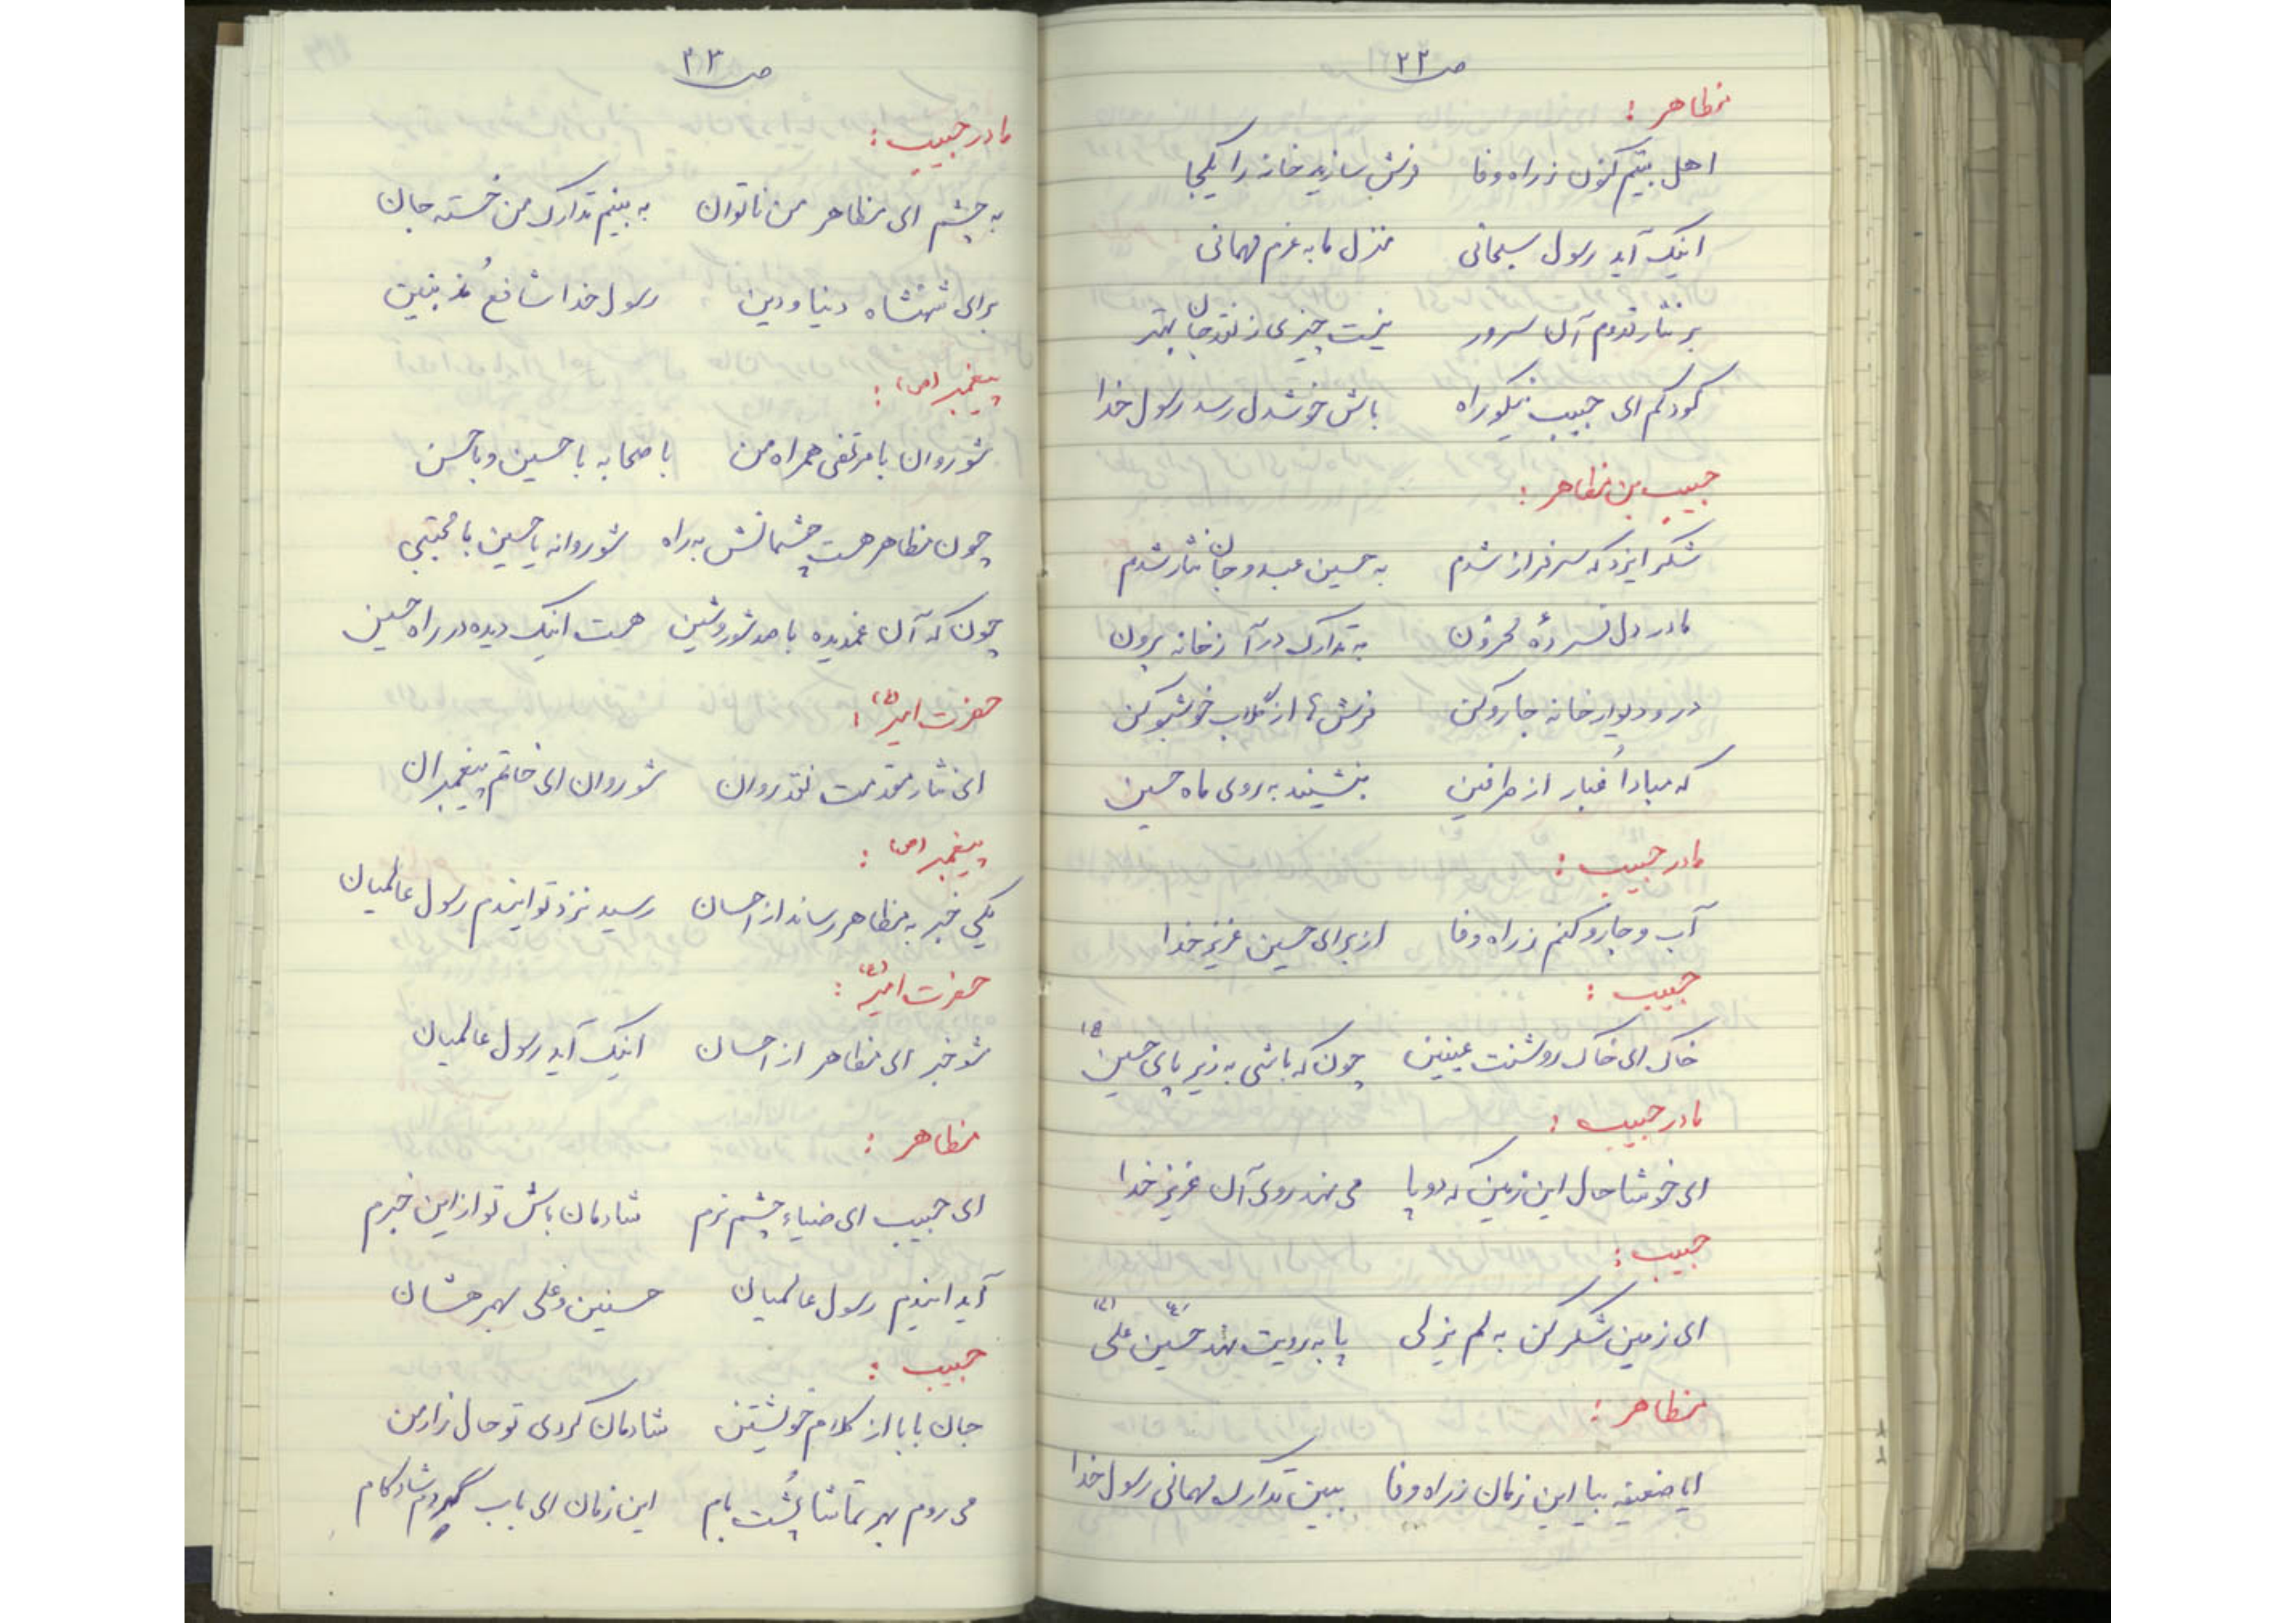 ص ۲۲
مظاهر :
اهل بیتم کنون ز راه وفا فرش سازید خانه را یکجا
اینک آید رسول سبحانی منزل ما به عزم مهمانی
بر نثار قدوم آن سرور نیست چیزی ز نقد جان بهتر
کودکم ای حبیب نیکو راه باش خوشدل رسد رسول خدا
حبیب بن مظاهر :
شکر ایزد که سرفراز شدم به حسین عبد و جان نثار شدم
مادر دل فسردهٔ محزون به تدارک درآ ز خانه برون
در و دیوار خانه جارو کن فرش ها از گلاب خوشبو کن
که مبادا غبار از طرفین بنشیند به روی ماه حسین
مادر حبیب :
آب و جارو کنم ز راه وفا از برای حسین عزیز خدا
حبیب :
خاک ای خاک روشنت عینین چون که باشی به زیر پای حسین (ع)
مادر حبیب :
ای خوشا حال این زمین که دو پا می نهد روی آن عزیز خدا
حبیب :
ای زمین شکر کن به لم یزلی پا به رویت نهد حسین (ع) علی (ع)
مظاهر :
ایا ضعیفه بیا این زمان ز راه وفا ببین تدارک مهمانی رسول خدا
ص ۲۳
مادر حبیب :
به چشم ای مظاهر من ناتوان به بینم تدارک من خسته جان
برای شهنشاه دنیا و دین رسول خدا شافع مُذنبین
پیغمبر (ص) :
شو روان با مرتضی همراه من با صحابه با حسین و با حسن
چون مظاهر هست چشمانش به راه شو روانه یا حسین با مجتبی
چون که آن غمدیده با صد شور و شین هست اینک دیده در راه حسین
حضرت امیر (ع) :
ای نثار مقدمت نقد روان شو روان ای خاتم پیغمبران
پیغمبر (ص) :
یکی خبر به مظاهر رساند از احسان رسید نزد تو ایندم رسول عالمیان
حضرت امیر (ع) :
شو خبر ای مظاهر از احسان اینک آید رسول عالمیان
مظاهر :
ای حبیب ای ضیاء چشم ترم شادمان باش تو از این خبرم
آید ایندم رسول عالمیان حسنین و علی بهمرهشان
حبیب :
جان بابا از کلام خویشتن شادمان کردی تو حال زار من
می روم بهر تماشا پُشت بام این زمان ای باب گردم شادکام